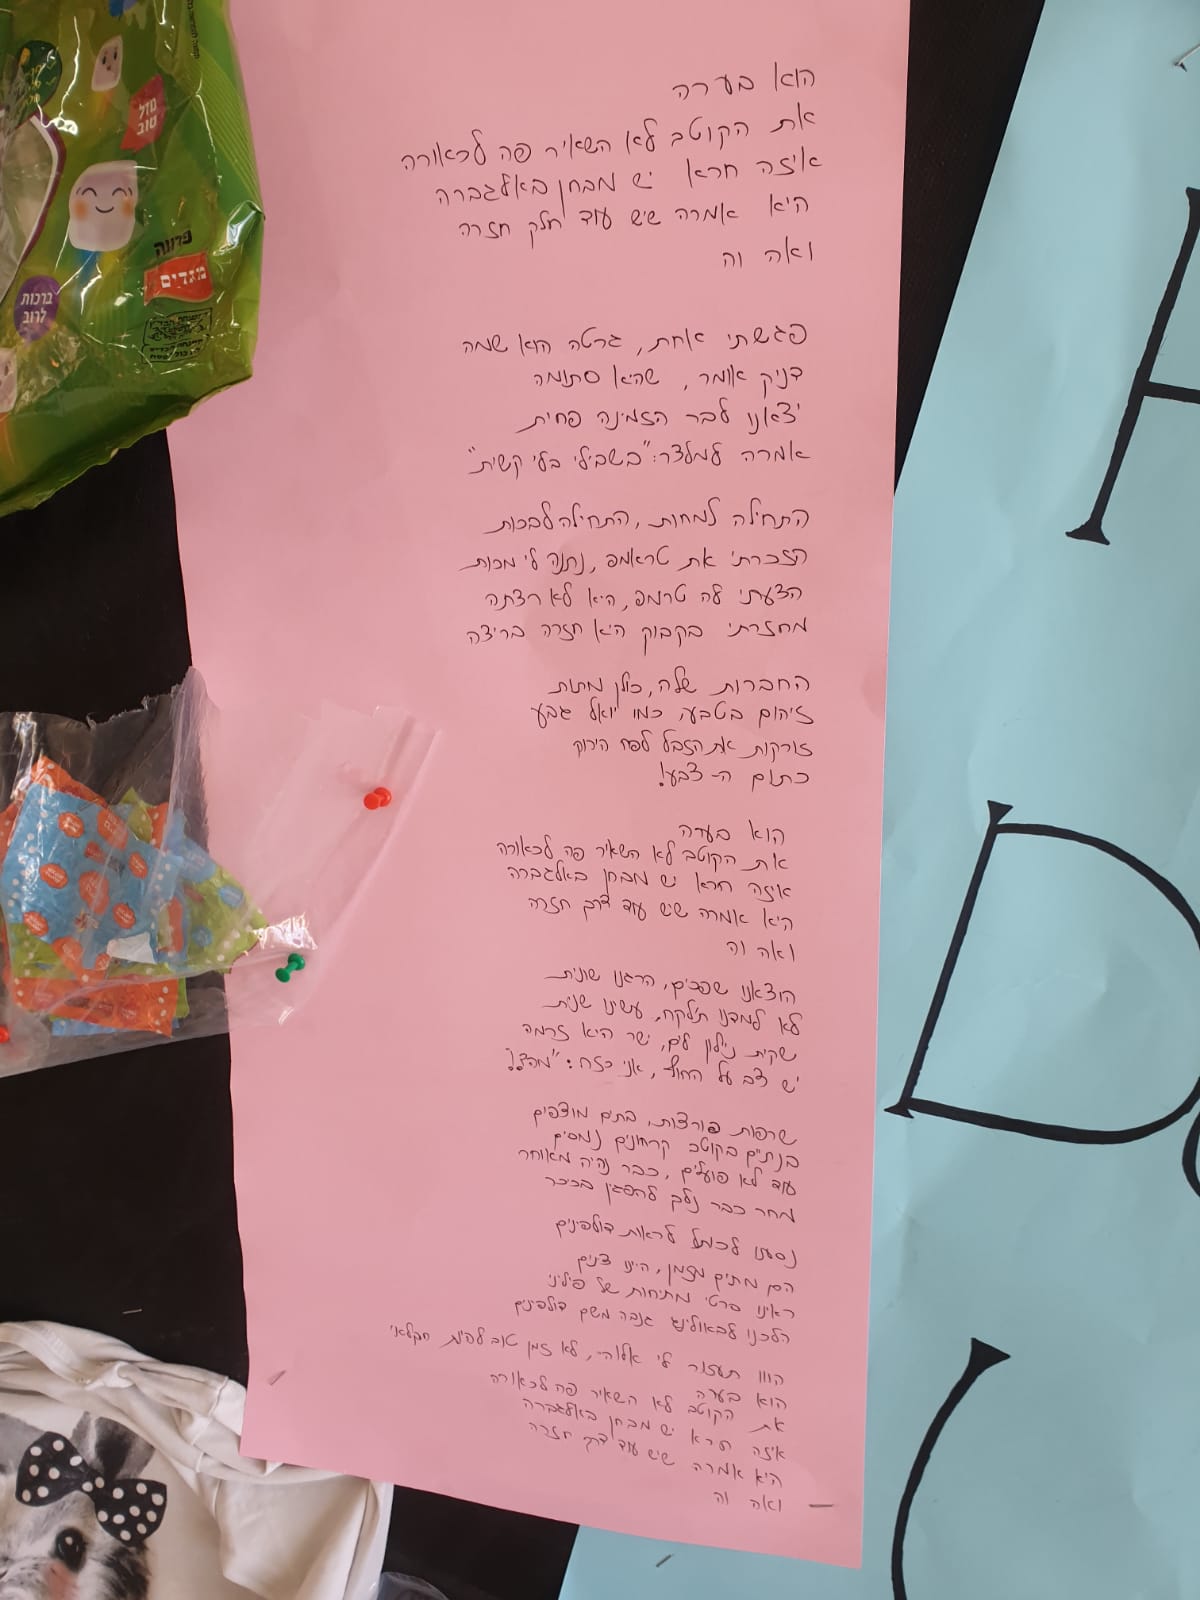 מזל
טוב
פרווה
מגדים
ברכות
לרוב
הוא בערה
את הקוטב לא השאיר פה לכאורה
איזה חרא יש מבחן באלגברה
היא אמרה שיש עוד חלק חזרה
ואה וה
פגשתי אחת, גרטה הוא שמה
דניק אומר, שהיא סתומה
יצאנו לבר הזמינה פחית
אמרה למלצר: "בשבילי בלי קשית"
התחילה למחות, התחילה לבכות
הזכרתי את טראמפ, נתנה לי מכות
הצעתי לה טרמפ, היא לא רצתה
מחזרתי בקבוק היא חזרה בריצה
החברות שלה, כולן מתות
זיהום בטבע, כמו יואל גבע
זורקות את הזבל לפח הירוק
כתום ה-צבע!
הוא בערה
את הקוטב לא השאיר פה לכאורה
איזה חרא יש מבחן באלגברה
היא אמרה שיש עוד דרך חזרה
ואה וה
הוצאנו שפכים, הרגנו שונית
לא למדנו ת'לקח, עשינו שנית
שקית ניילון לים, ישר היא זרמה
יש צב על החוף, אני כזה: "מה??"
שרפות פורצות, בתים מוצפים
בנתיים בקוטב קרחונים נמסים
עוד לא פועלים, כבר נהיה מאוחר
מחר כבר נלך להפגין בכיכר
נסענו לכרמל לראות דולפינים
הם מתים מזמן, היינו צינים
ראינו סרטי מתיחות של פיליני
הלכנו לבאולינג גנבה משם דולפינים
הווו תעזור לי אלוהי, לא זמן טוב להיות חקלאי
הוא בערה
את הקוטב לא השאיר פה לכאורה
איזה חרא יש מבחן באלגברה
היא אמרה שיש עוד דרך חזרה
ואה וה
H
D